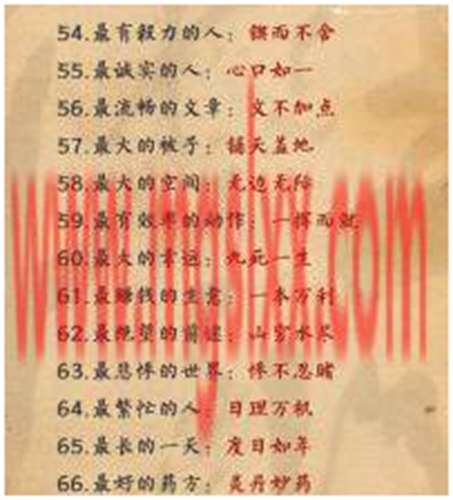 54.最有毅力的人：锲而不舍
55.最诚实的人：心口如一
56.最流畅的文章：文不加点
57.最大的被子：铺天盖地
58.最大的空间：无边无际
59.最有效率的动作：一挥而就
60.最大的幸运：九死一生
61.最赚钱的生意：一本万利
62.最绝望的前途：山穷水尽
63.最悲惨的世界：惨不忍睹
64.最繁忙的人：日理万机
65.最长的一天：度日如年
66.最好的药方：灵丹妙药